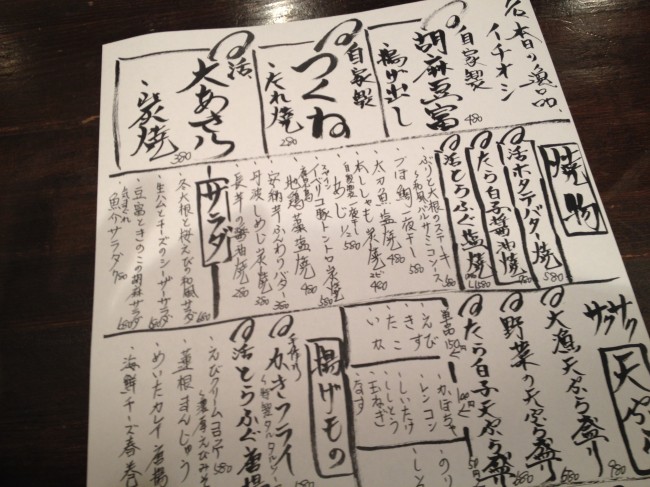 本日の逸品
イチオシ
自家製
胡麻豆富
揚げ出し
480
自家製
つくね
・たれ焼
280
活
大あさり
・炭焼
380
焼物
活ホタテバター焼
580
たら白子醤油焼
活とらふぐ塩焼
ぶりと大根のステーキ
つぼ鯛一夜干し
太刀魚塩焼
本ししゃも炭焼
自家製一夜干し
あじ
イベリコ豚トントロ炭焼
地鶏藁塩焼
480
安納芋ふんわりバター
380
丹波しめじ炭焼
280
長芋の醤油焼
280
サラダ
冬大根と桜えびの和風サラダ
生ハムとチーズのシーザーサラダ
豆富ときのこの胡麻サラダ
魚介サラダ
780
サクサク
天ぷら
大漁天ぷら盛り
野菜の天ぷら盛り
たら白子天ぷら盛り
単品
150円
えび
きす
たこ
いか
100円
かぼちゃ
レンコン
しいたけ
ししとう
玉ねぎ
なす
のり
揚げもの
手作り
かきフライ
活とらふぐ唐揚
えびクリームコロッケ
580
・蓮根まんじゅう
・めいたカレイ唐揚
・海鮮チーズ春巻